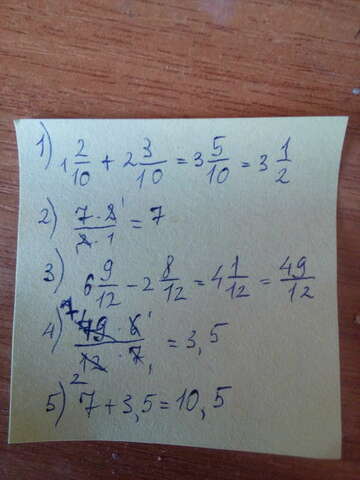 1) 1 2/10 + 2 3/10 = 3 5/10 = 3 1/2
2) 7·2 1 / 2·1 = 7
3) 6 9/12 - 2 8/12 = 4 1/12 = 49/12
4) 7 49·6 / 12·7 1 = 3,5
2
5) 7 + 3,5 = 10,5